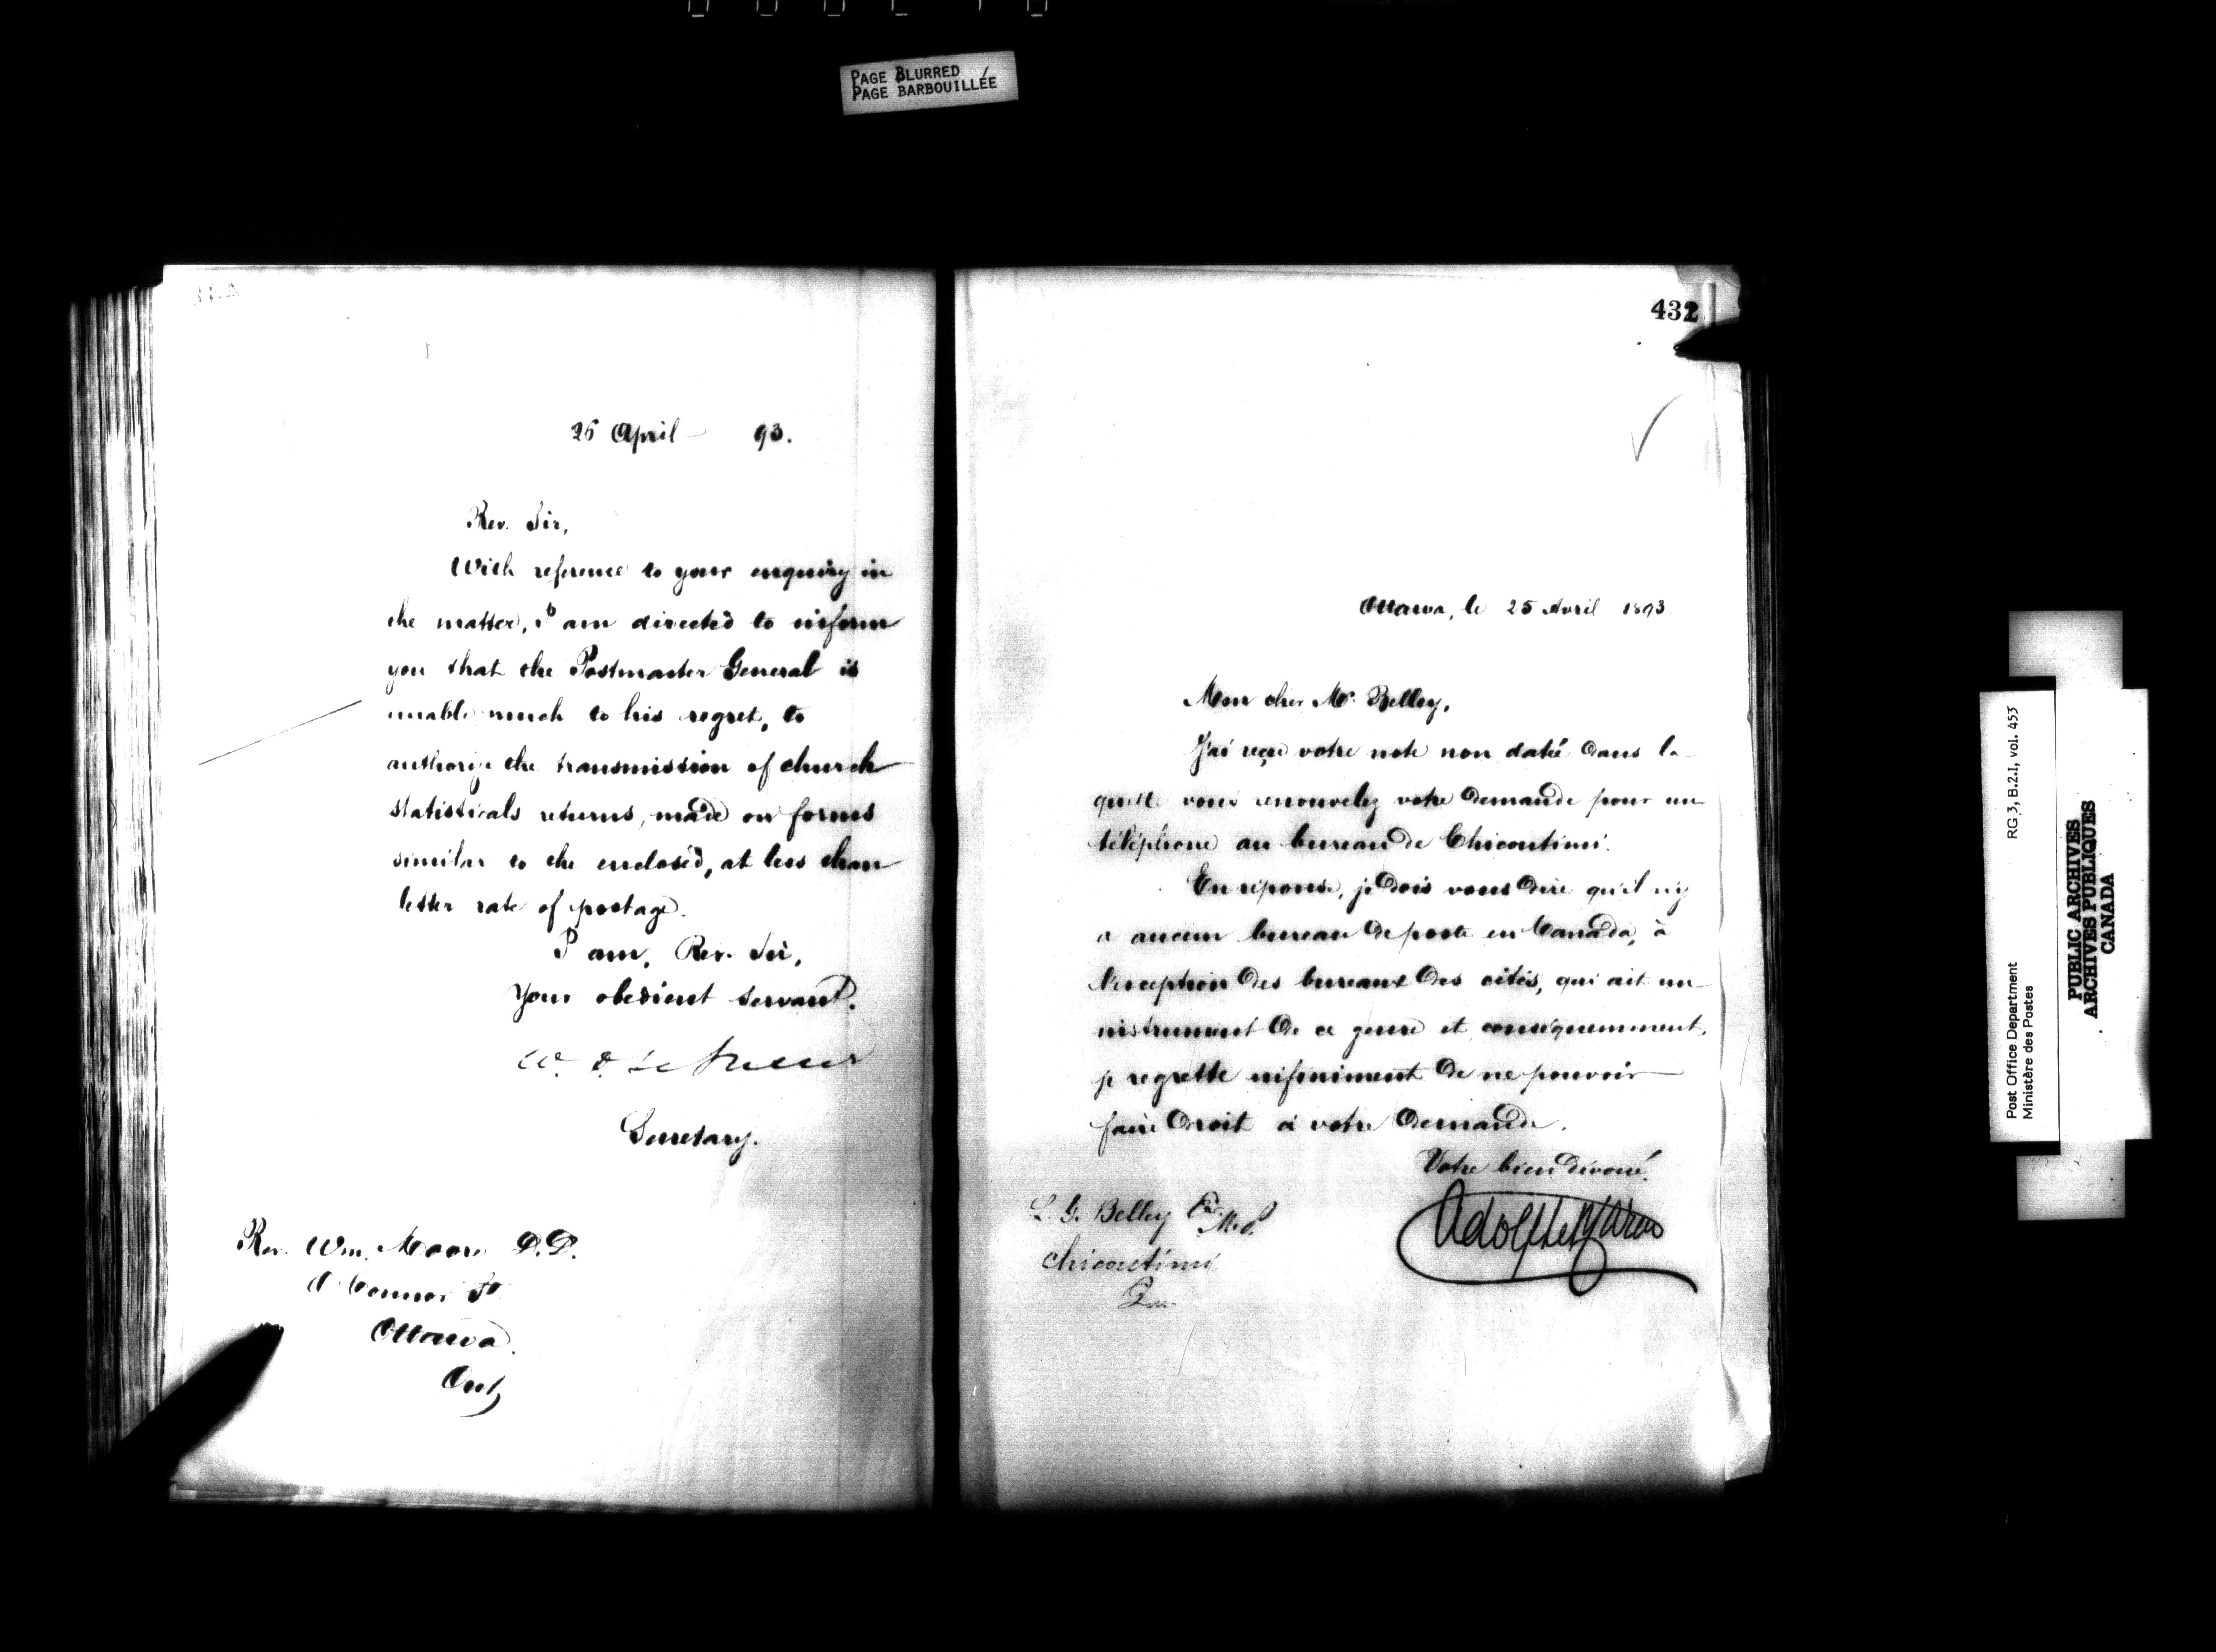 PAGE BLURRED
PAGE BARBOUILLÉE
25 April 93.
Rev. Sir,
With reference to your enquiry in
the matter, I am directed to inform
you that the Postmaster General is
unable much to his regret, to
authorize the transmission of church
statisticals returns, made on forms
similar to the enclosed, at less than
letter rate of postage.
I am, Rev. Sir,
Your obedient servant.
W. D. LeSueur
Secretary.
Rev. Wm. Moore D.D.
O'Connor St
Ottawa.
Ont,
432
Ottawa, le 25 Avril 1893
Mon cher Mr. Belley,
J'ai reçu votre note non datée dans la-
quelle vous renouvelez votre demande pour un
téléphone au bureau de Chicoutimi.
En réponse, je dois vous dire qu'il n'y
a aucun bureau de poste en Canada, à
l'exception des bureaux des cités, qui ait un
instrument de ce genre et, conséquemment,
je regrette infiniment de ne pouvoir
faire droit à votre demande.
Votre bien dévoué.
Adolphe P. Caron
L. G. Belley Esq. M.P.
Chicoutimi
Que.
RG 3, B.2.I, vol. 453
Post Office Department
Ministère des Postes
PUBLIC ARCHIVES
ARCHIVES PUBLIQUES
CANADA